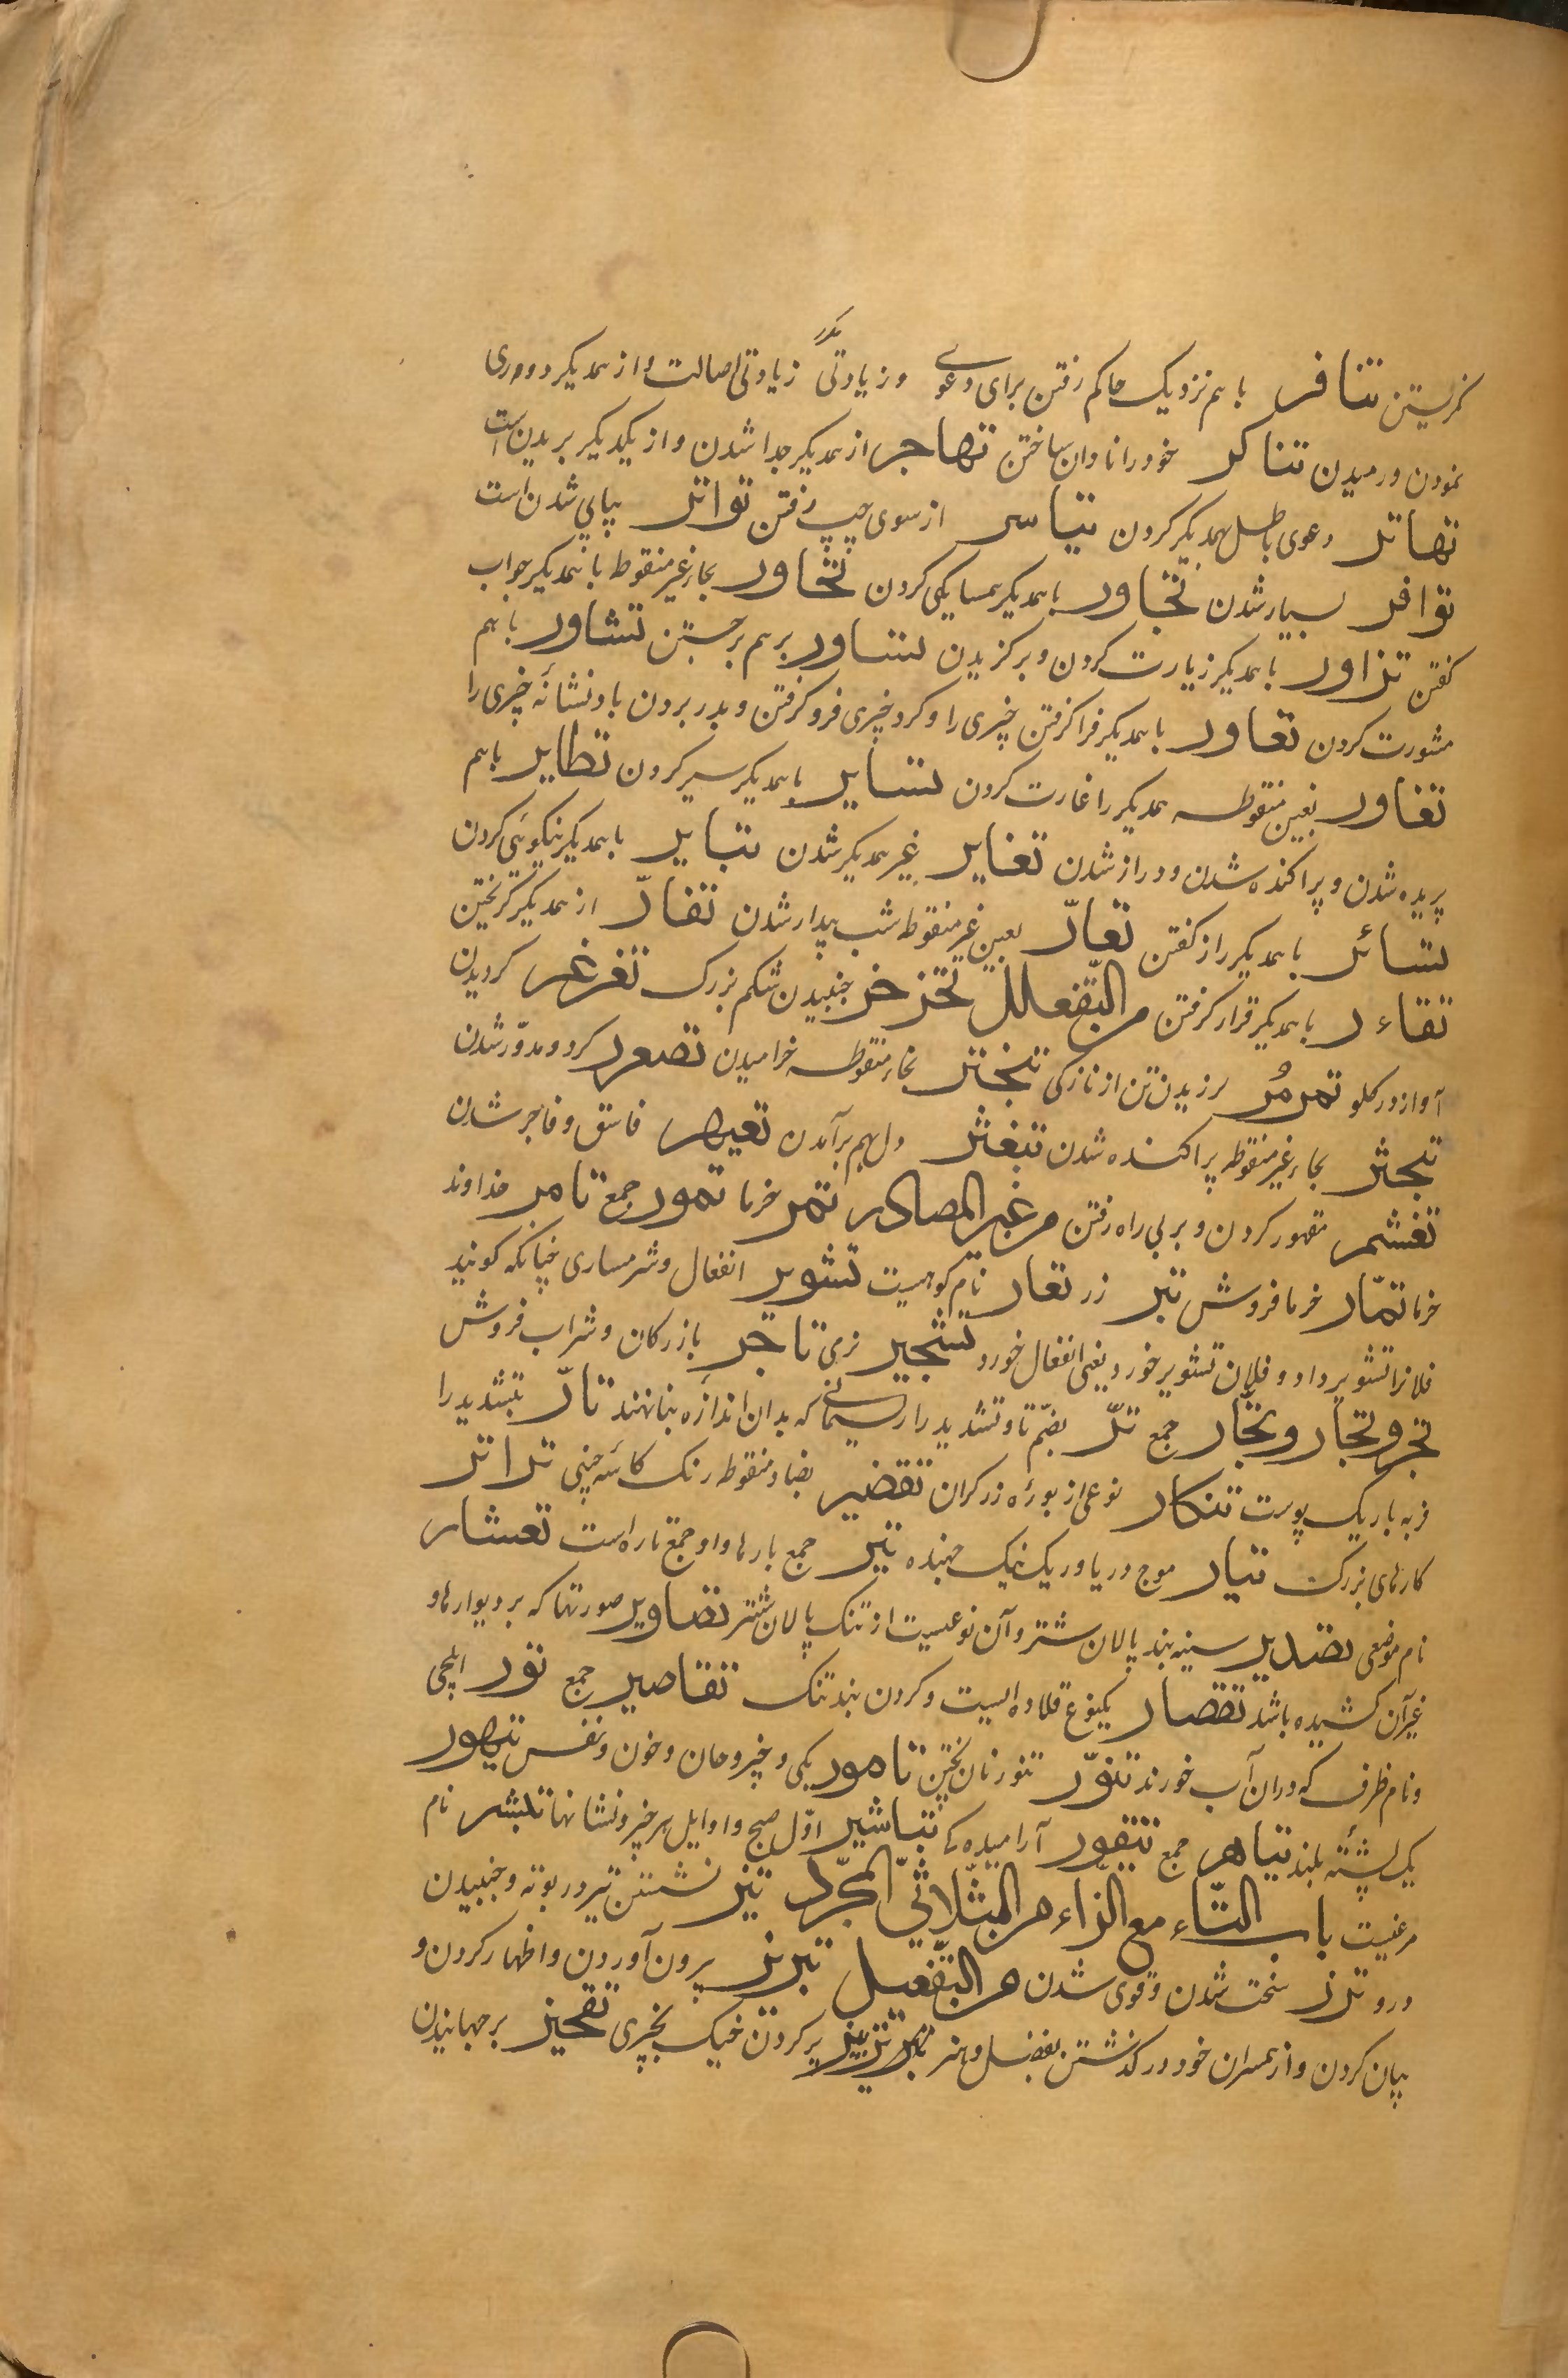 نگریستن تنافر باهم نزدیک حاکم رفتن برای دعوے و زیادتی زیادتی اصالت و از همدیکر دووری
نمودن و رمیدن تناکر خود را نادان ساختن تهاجر از همدیکر جدا شدن و از یکدیکر بریدن است
تهاتر دعوی باطل بهمدیکر کردن تیاسر از سوی چپ رفتن تواتر پیاپی شدن است
توافر بسیار شدن تجاور با همدیکر همسایکی کردن تحاور بحاء غیر منقوطه با همدیکر جواب
کفتن تزاور با همدیکر زیارت کردن و برکزیدن تساور بر هم برجستن تشاور باهم
مشورت کردن تعاور با همدیکر فرا کرفتن چیزی را و کرد چیزی فرو کرفتن و بدر بردن باد نشانهٔ چیزی را
تغاور بغین منقوطه همدیکر را غارت کردن تسایر با همدیکر سیر کردن تطایر باهم
پریده شدن و پراکنده شدن و دراز شدن تغایر غیر همدیکر شدن تبایر با همدیکر نیکوئی کردن
تسائر با همدیکر راز کفتن تعارّ بعین غیر منقوطه شب بیدار شدن تفارّ از همدیکر کریختن
تقاءر با همدیکر قرار کرفتن من التّفعلل تخزخر جنبیدن شکم بزرک تغرغر کردیدن
آواز در کلو تمرمُر لرزیدن تن از نازکی تبختر بخاء منقوطه خرامیدن تصعرر کرد و مدوّر شدن
تبحثر بحاء غیر منقوطه پراکنده شدن تبغثر دل بهم برآمدن تعیهر فاسق و فاجر شدن
تغشمر مقهور کردن و بر بی راه رفتن من غیر المصادر تمر خرما تمور جمع تامر خداوند
خرما تمّار خرما فروش تبر زر تعار نام کوهیست تشویر انفعال و شرمساری چنانکه کویند
فلانرا تشویر داد و فلان تشویر خورد یعنی انفعال خورد تثجیر نری تاجر بازرکان و شراب فروش
تجر و تجار و تجّار جمع ترّ بضمّ تا و تشدید را ریسمانے که بدان اندازه بنا نهند تارّ بتشدید را
فربه باریک پوست تنکار نوعی از بورهٔ زرکران تقضیر بضاد منقوطه رنک کاسهٔ چینی تراتر
کارهای بزرک تیار موج دریا و ریک نیک جهنده تیر جمع بارها و او جمع تاره است تعشار
نام موضعی تصدیر سینه بند پالان شتر و آن نوعیست از تنک پالان شتر تصاویر صورتها که بر دیوارها و
غیر آن کشیده باشد تقصار یکنوع قلاده ایست و کردن بند تنک تقاصیر جمع تور ایلچی
و نام ظرفی که دران آب خورند تنوّر تنور نان پختن تامور یکی و چیز و جان و خون و نفس تیهور
یک پشتهٔ بلند تیاهر جمع تیقور آرامیدہ کے تباشیر اوّل صبح و اوایل هر چیز و نشانها تبشر نام
مرغیست باب التّاء مع الزّاء من الثّلاثیّ المجرّد تیز نشستن تیر در بوته و جنبیدن
درو ترز سخت شدن و قوی شدن من التّفعیل تبریز برون آوردن و اظهار کردن و
بیان کردن و از همسران خود در کذشتن بفضل و هنر پر کردن خیک بچیزی تقحیز برجهانیدن